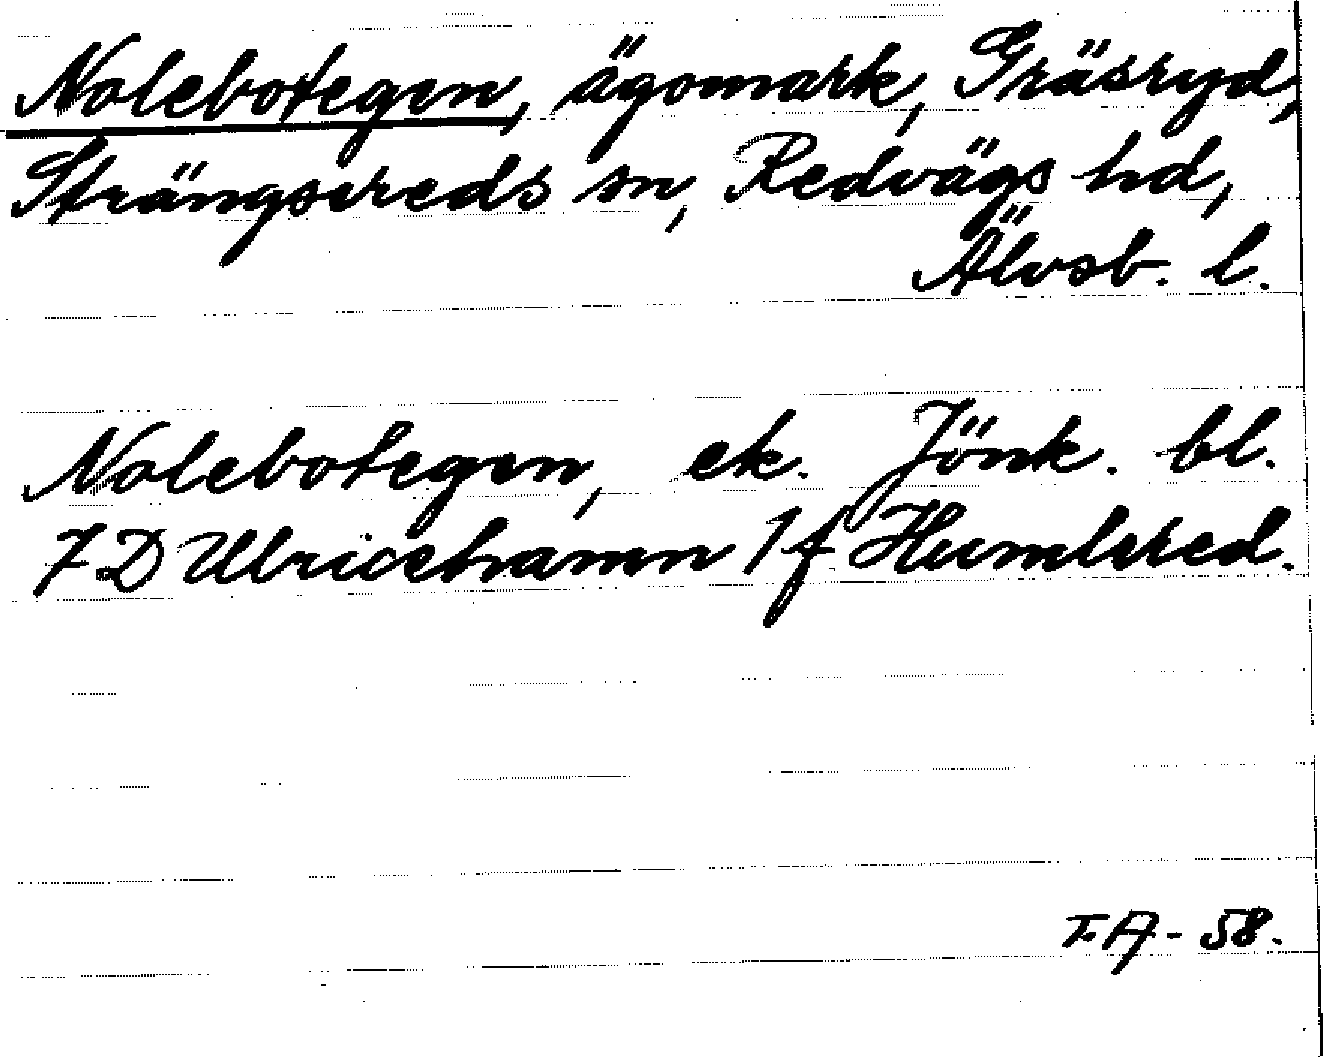 Nolebotegen, ägomark, Gräsryd,
Strängsereds sn, Redvägs hd,
Älvsb. l.
Nolebotegen, ek. Jönk. bl.
7 D Ulricehamn 1 f Humlered.
T.A - 58.